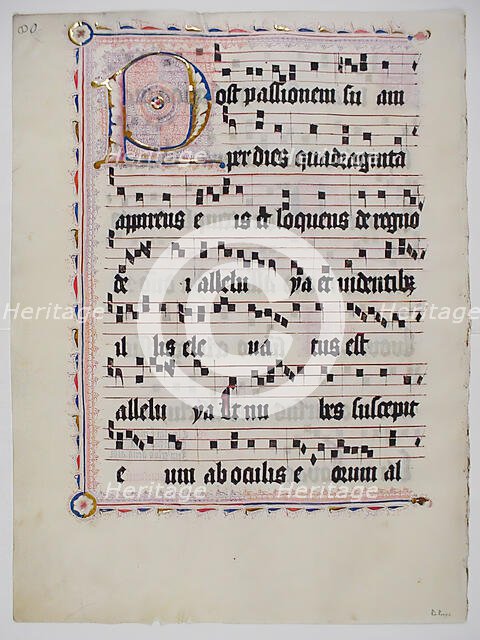 Post passionem su am
per dies quadraginta
apparens e is et loquens de regno
de i allelu ya et videntibz
il lis ele va tus est
allelu ya Et nu bes suscepit
e um ab oculis e orum al